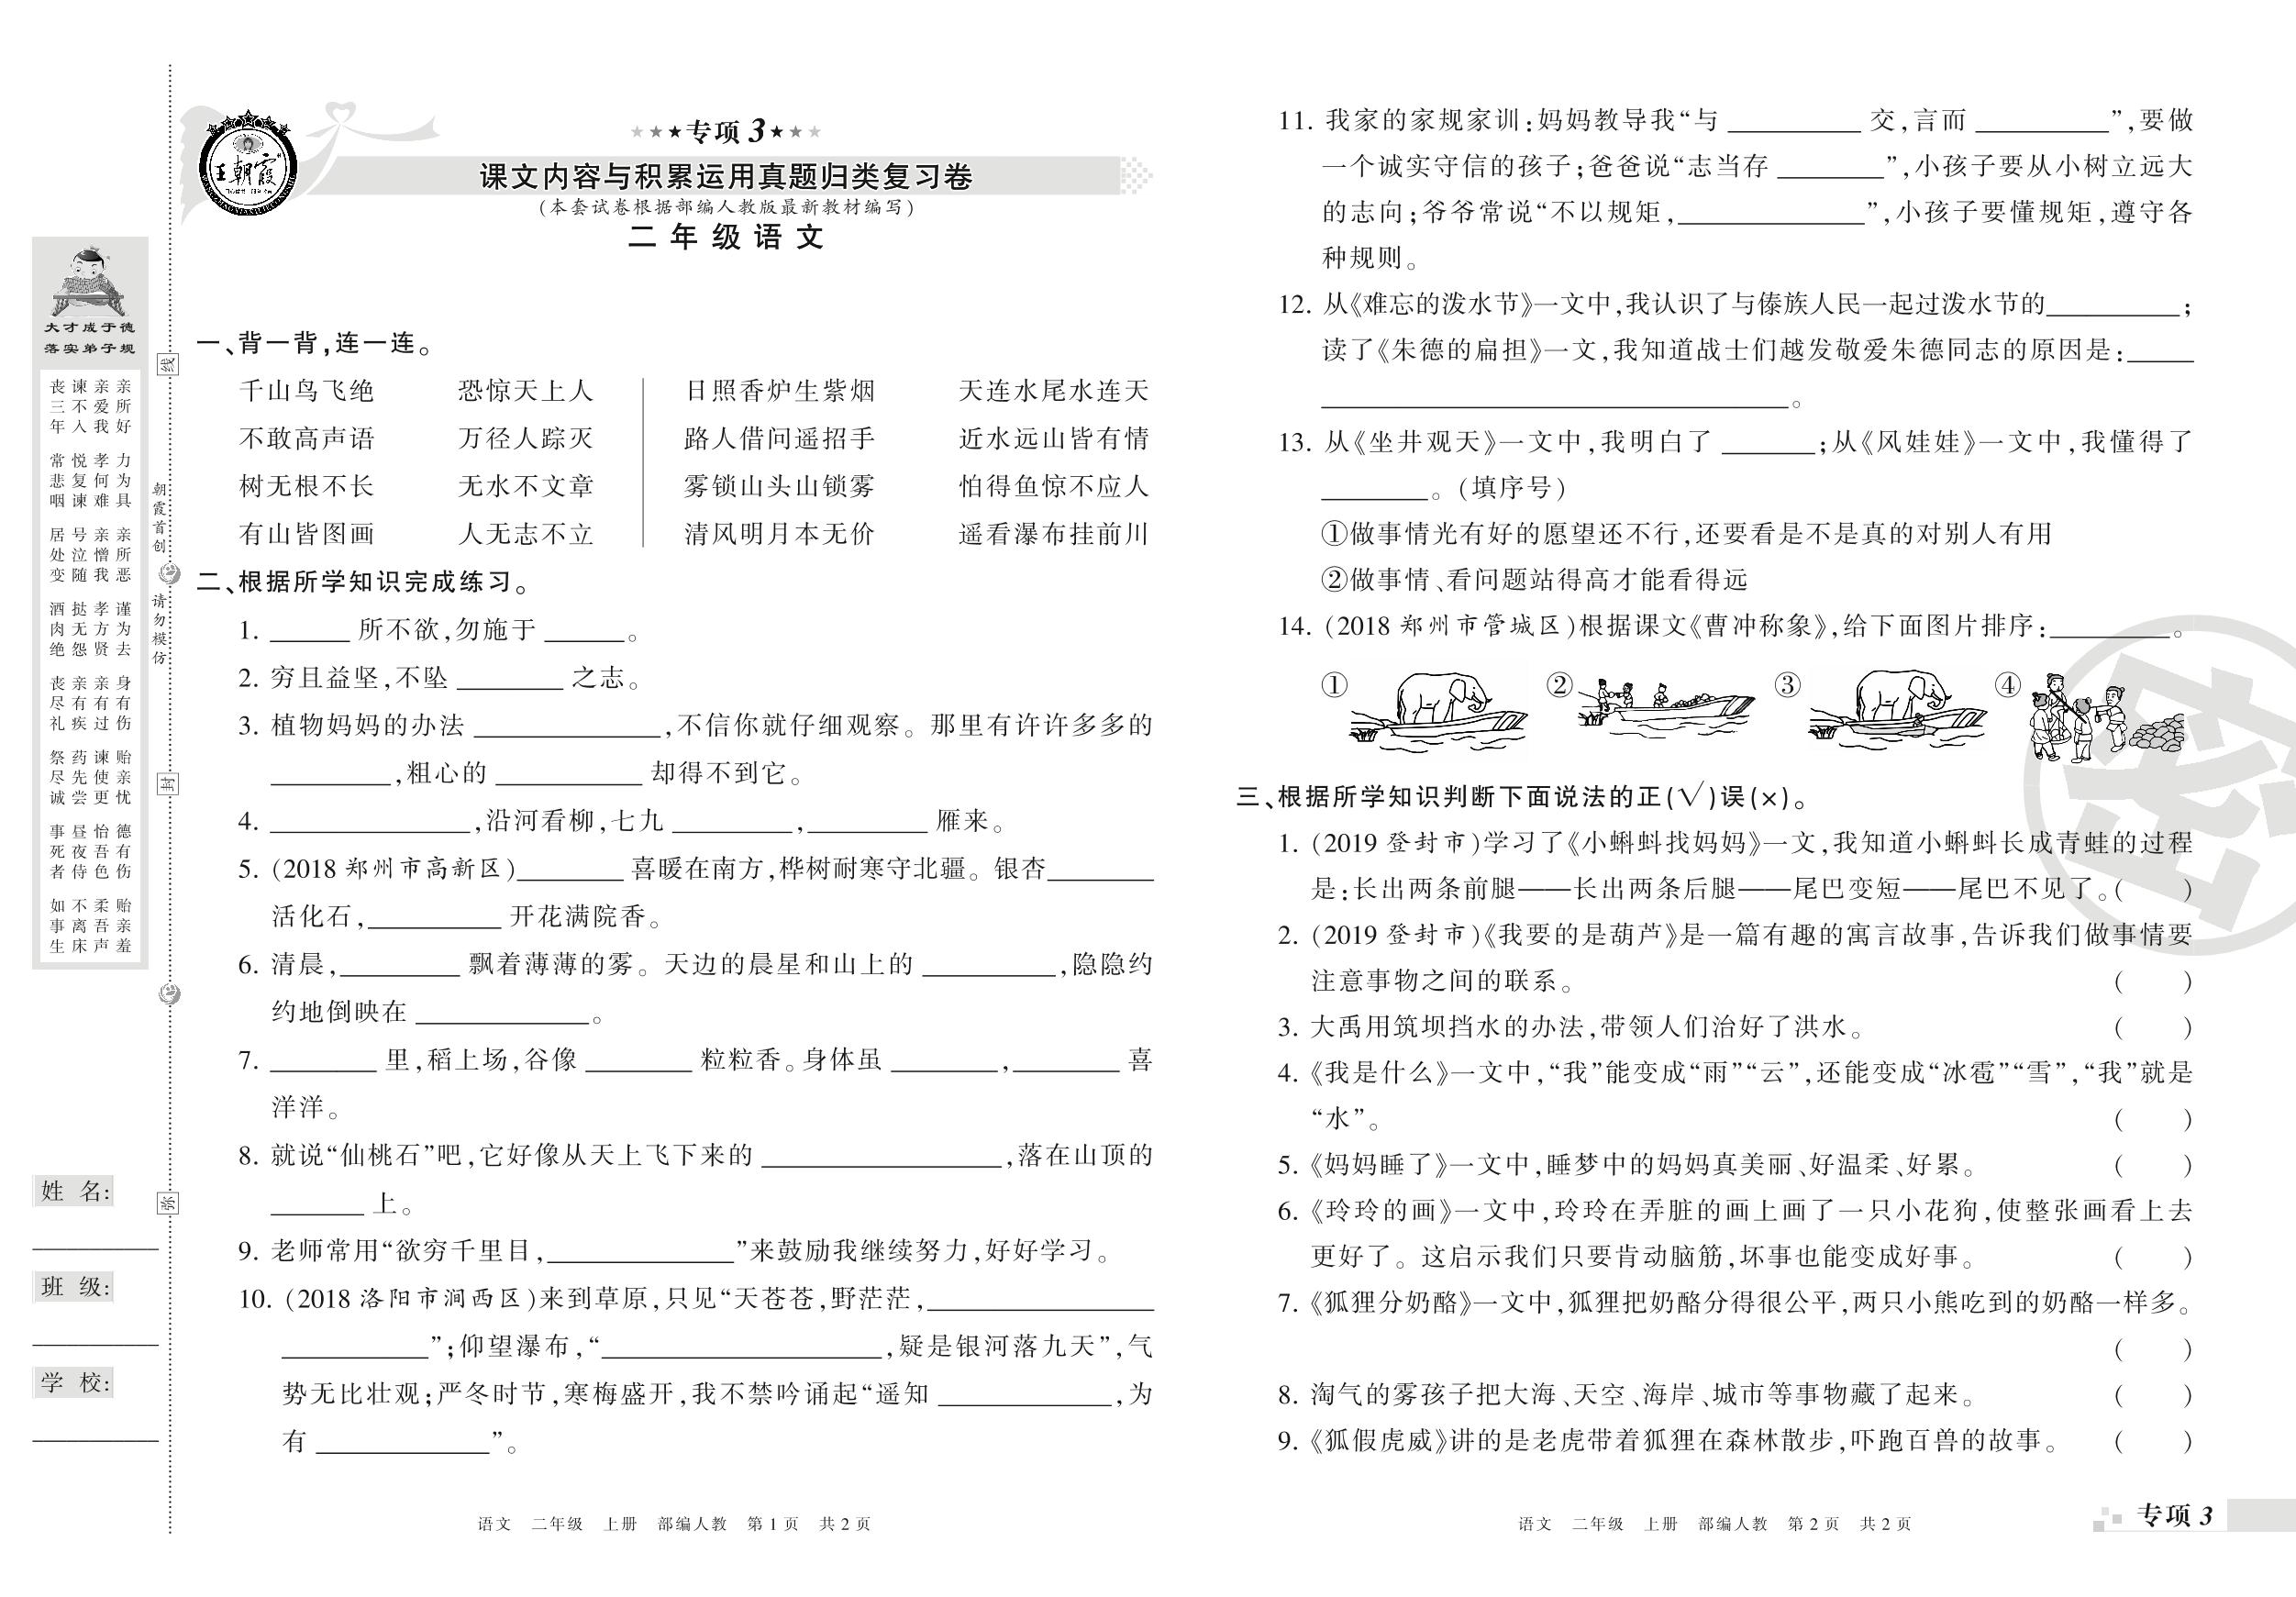 ★★★专项3★★★
王朝霞
课文内容与积累运用真题归类复习卷
(本套试卷根据部编人教版最新教材编写)
二年级语文
大才成于德
落实弟子规
丧 谏 亲 亲
三 不 爱 所
年 入 我 好
常 悦 孝 力
悲 复 何 为
咽 谏 难 具
居 号 亲 亲
处 泣 憎 所
变 随 我 恶
酒 挞 孝 谨
肉 无 方 为
绝 怨 贤 去
丧 亲 亲 身
尽 有 有 有
礼 疾 过 伤
祭 药 谏 贻
尽 先 使 亲
诚 尝 更 忧
事 昼 怡 德
死 夜 吾 有
者 侍 色 伤
如 不 柔 贻
事 离 吾 亲
生 床 声 羞
姓 名:
班 级:
学 校:
线
朝霞首创
请勿模仿
封
弥
一、背一背,连一连。
千山鸟飞绝 恐惊天上人 日照香炉生紫烟 天连水尾水连天
不敢高声语 万径人踪灭 路人借问遥招手 近水远山皆有情
树无根不长 无水不文章 雾锁山头山锁雾 怕得鱼惊不应人
有山皆图画 人无志不立 清风明月本无价 遥看瀑布挂前川
二、根据所学知识完成练习。
1. ______ 所不欲,勿施于 ______。
2. 穷且益坚,不坠 ________ 之志。
3. 植物妈妈的办法 ______________,不信你就仔细观察。那里有许许多多的
_________,粗心的 ___________ 却得不到它。
4. _______________,沿河看柳,七九 _________,_________ 雁来。
5. (2018 郑州市高新区)________ 喜暖在南方,桦树耐寒守北疆。银杏________
活化石,__________ 开花满院香。
6. 清晨,_________ 飘着薄薄的雾。天边的晨星和山上的 __________,隐隐约
约地倒映在 _____________。
7. ________ 里,稻上场,谷像 ________ 粒粒香。身体虽 ________,________ 喜
洋洋。
8. 就说“仙桃石”吧,它好像从天上飞下来的 __________________,落在山顶的
_______ 上。
9. 老师常用“欲穷千里目,______________”来鼓励我继续努力,好好学习。
10. (2018 洛阳市涧西区)来到草原,只见“天苍苍,野茫茫,_________________
___________”;仰望瀑布,“_____________________,疑是银河落九天”,气
势无比壮观;严冬时节,寒梅盛开,我不禁吟诵起“遥知 _____________,为
有 _____________”。
语文 二年级 上册 部编人教 第1页 共2页
11. 我家的家规家训:妈妈教导我“与 __________ 交,言而 __________”,要做
一个诚实守信的孩子;爸爸说“志当存 ________”,小孩子要从小树立远大
的志向;爷爷常说“不以规矩,______________”,小孩子要懂规矩,遵守各
种规则。
12. 从《难忘的泼水节》一文中,我认识了与傣族人民一起过泼水节的__________;
读了《朱德的扁担》一文,我知道战士们越发敬爱朱德同志的原因是:_____
___________________________________。
13. 从《坐井观天》一文中,我明白了 _______;从《风娃娃》一文中,我懂得了
________。(填序号)
①做事情光有好的愿望还不行,还要看是不是真的对别人有用
②做事情、看问题站得高才能看得远
14. (2018 郑州市管城区)根据课文《曹冲称象》,给下面图片排序:_________。
① ② ③ ④
密
三、根据所学知识判断下面说法的正(√)误(×)。
1. (2019 登封市)学习了《小蝌蚪找妈妈》一文,我知道小蝌蚪长成青蛙的过程
是:长出两条前腿——长出两条后腿——尾巴变短——尾巴不见了。( )
2. (2019 登封市)《我要的是葫芦》是一篇有趣的寓言故事,告诉我们做事情要
注意事物之间的联系。 ( )
3. 大禹用筑坝挡水的办法,带领人们治好了洪水。 ( )
4. 《我是什么》一文中,“我”能变成“雨”“云”,还能变成“冰雹”“雪”,“我”就是
“水”。 ( )
5. 《妈妈睡了》一文中,睡梦中的妈妈真美丽、好温柔、好累。 ( )
6. 《玲玲的画》一文中,玲玲在弄脏的画上画了一只小花狗,使整张画看上去
更好了。这启示我们只要肯动脑筋,坏事也能变成好事。 ( )
7. 《狐狸分奶酪》一文中,狐狸把奶酪分得很公平,两只小熊吃到的奶酪一样多。
( )
8. 淘气的雾孩子把大海、天空、海岸、城市等事物藏了起来。 ( )
9. 《狐假虎威》讲的是老虎带着狐狸在森林散步,吓跑百兽的故事。 ( )
语文 二年级 上册 部编人教 第2页 共2页
专项 3